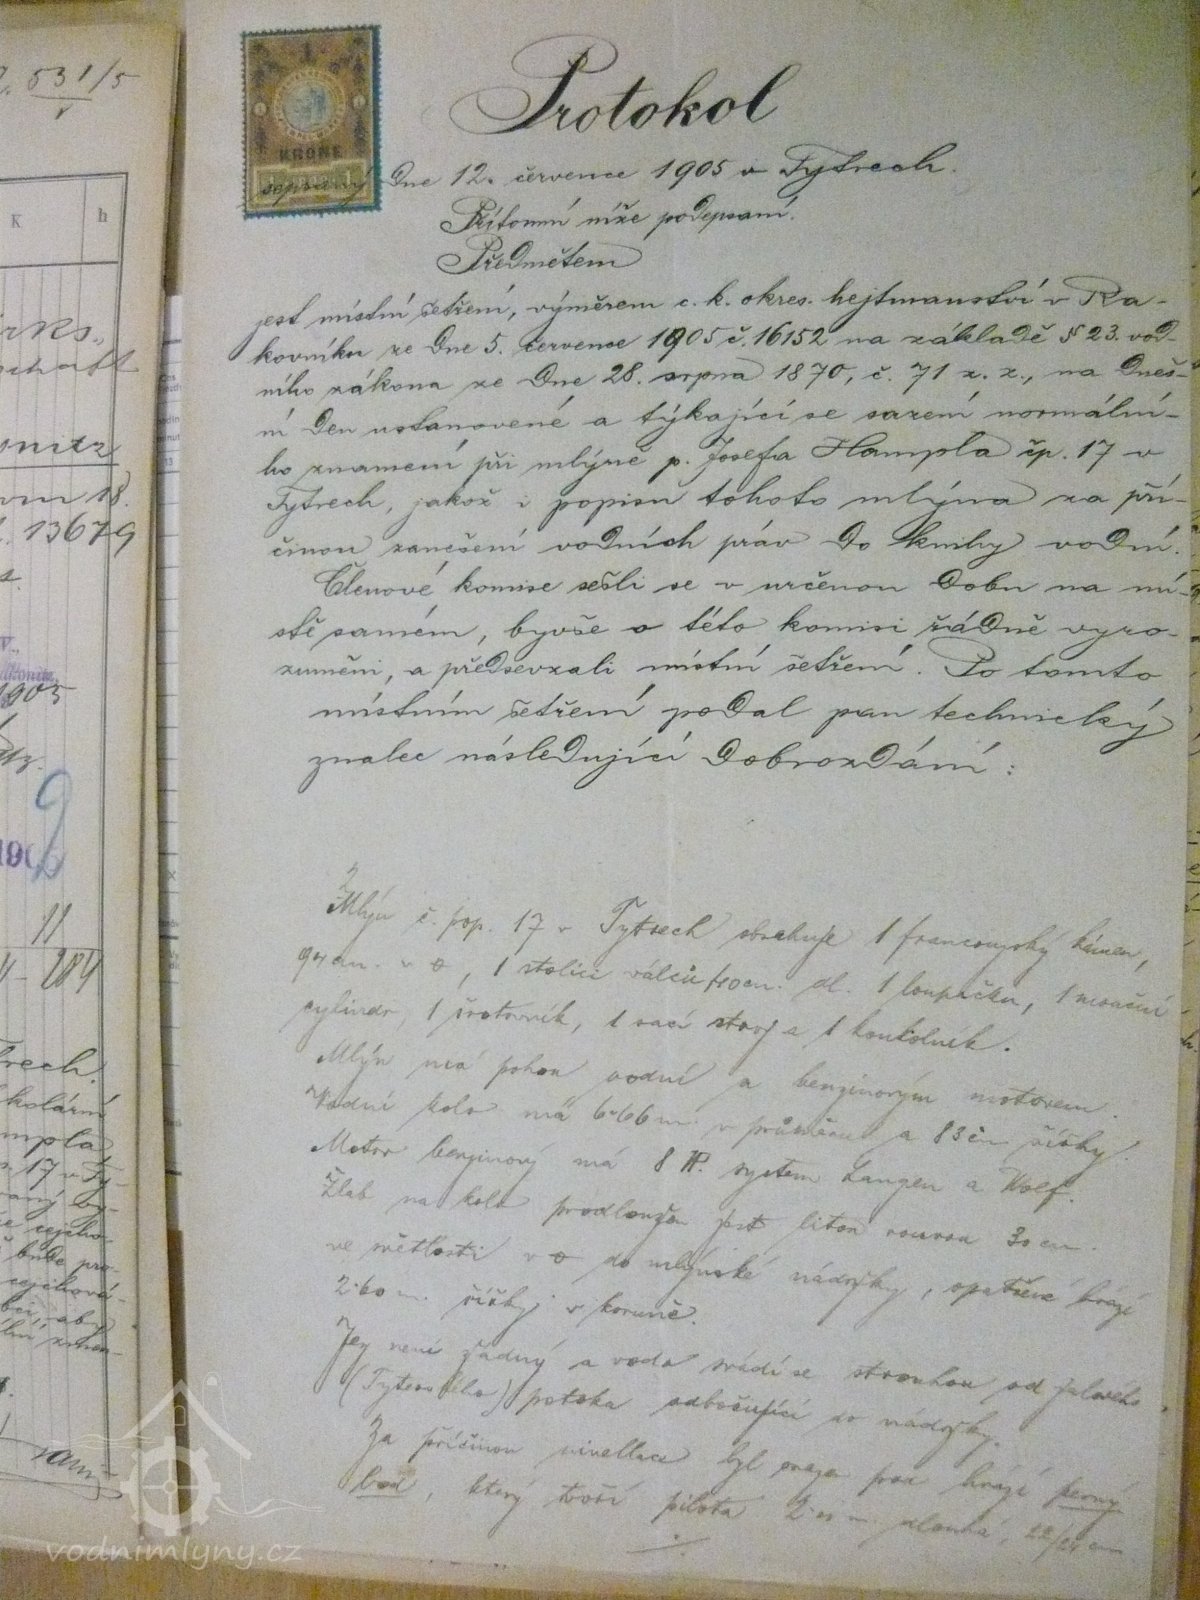 531/5
K h
1
KRONE
Protokol
sepsaný Dne 12. července 1905 v Tytrech.
Přítomní níže podepsaní.
Předmětem
jest místní šetření, výměrem c. k. okres. hejtmanství v Ra-
kovníku ze Dne 5. července 1905 č. 16152 na základě § 23. vod-
ního zákona ze Dne 28. srpna 1870, č. 71 z. z., na Dneš-
ní Den ustanovené a týkající se sazení normální-
ho znamení při mlýně p. Josefa Hampla čp. 17 v
Tytrech, jakož i popisu tohoto mlýna za pří-
činou zanešení vodních práv Do knihy vodní.
Členové komise sešli se v určenou Dobu na mí-
stě samém, byvše o této komisi řádně vyro-
zuměni, a předsevzali místní šetření. Po tomto
místním šetření podal pan technický
znalec následující Dobrozdání:
Mlýn č. pop. 17 v Tytrech obsahuje 1 francouzský kámen,
v ⌀, 1 stolici válců 40 cm. dl. 1 loupačku, 1 mouční
cylindr, 1 šrotovník, 1 sací stroj a 1 koukolník.
Mlýn má pohon vodní a benzinovým motorem.
Vodní kolo má 6·66 m. v průměru a 83 cm šířky.
Motor benzinový má 8 HP. system Langen a Wolf.
Žlab na kolo prodloužen jest litou rourou 30 cm.
ve světlosti v ⌀ do mlýnské nádržky, opatřené hrází
2·60 m. šířky v koruně.
Jez není žádný a voda svádí se strouhou od jalového
(Tyterského) potoka odbočující do nádržky.
Za příčinou nivellace byl vražen pod hrází pevný
bod, který tvoří pilota dlouhá, 22/24 cm
./.
irks-
schaft
onitz
13679
1905
190
9
11
284
trech.
kolární
mpla
17 v Ty-
vaný by-
cejcho-
bude pro-
cejchová-
aby
vodnimlyny.cz